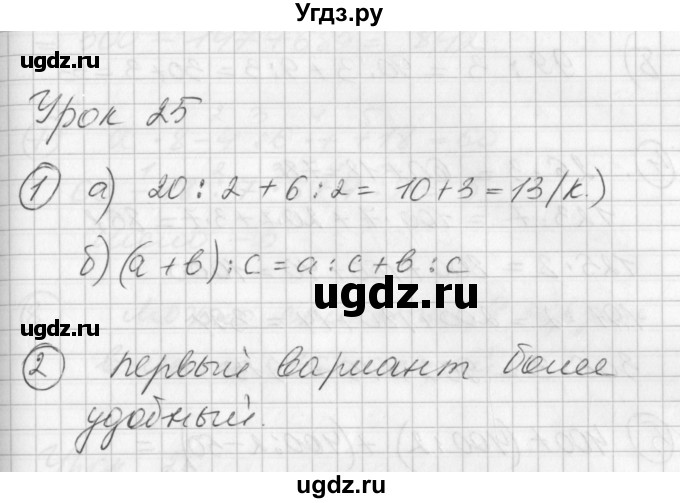 Угдз.ру
ugdz.ru
Урок 25
① а) 20 : 2 + 6 : 2 = 10 + 3 = 13 (к.)
б) (а + в) : с = а : с + в : с
ugdz.ru
ugdz.ru
② первый вариант более
удобный.
ugdz.ru
Угдз.ру